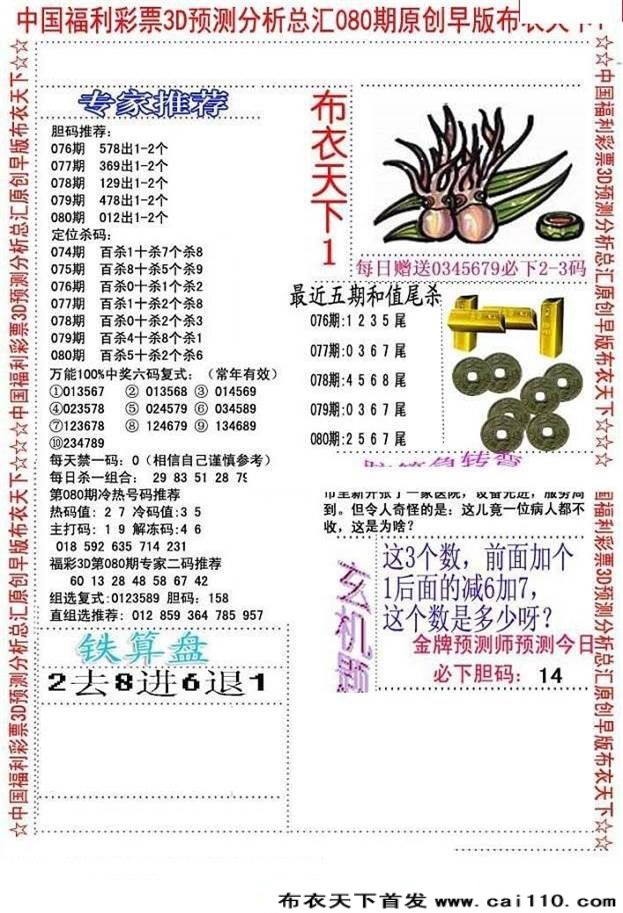 中国福利彩票3D预测分析总汇080期原创早版布衣天下
☆☆中国福利彩票3D预测分析总汇原创早版布衣天下☆☆☆
☆中国福利彩票3D预测分析总汇原创早版布衣天下☆☆
专家推荐
胆码推荐:
076期 578出1-2个
077期 369出1-2个
078期 129出1-2个
079期 478出1-2个
080期 012出1-2个
定位杀码:
074期 百杀1十杀7个杀8
075期 百杀8十杀5个杀9
076期 百杀0十杀1个杀2
077期 百杀1十杀2个杀8
078期 百杀0十杀2个杀3
079期 百杀4十杀8个杀1
080期 百杀5十杀2个杀6
万能100%中奖六码复式: (常年有效)
①013567 ② 013568 ③ 014569
④023578 ⑤ 024579 ⑥ 034589
⑦123678 ⑧ 124679 ⑨ 134689
⑩234789
每天禁一码: 0 (相信自己谨慎参考)
每日杀一组合: 29 83 51 28 79
第080期冷热号码推荐
热码值: 2 7 冷码值:3 5
主打码: 1 9 解冻码:4 6
018 592 635 714 231
福彩3D第080期专家二码推荐
60 13 28 48 58 67 42
组选复式:0123589 胆码: 158
直组选推荐: 012 859 364 785 957
铁算盘
2去8进6退1
布衣天下1
每日赠送0345679必下2-3码
最近五期和值尾杀
076期:1 2 3 5 尾
077期:0 3 6 7 尾
078期:4 5 6 8 尾
079期:0 3 6 7 尾
080期:2 5 6 7 尾
市里新开张了一家医院, 设备先进, 服务周
到。但令人奇怪的是: 这儿竟一位病人都不
收, 这是为啥?
玄机题
这3个数, 前面加个
1后面的减6加7,
这个数是多少呀?
金牌预测师预测今日
必下胆码: 14
☆☆中国福利彩票3D预测分析总汇原创早版布衣天下☆☆☆
中国福利彩票3D预测分析总汇原创早版布衣天下☆☆
布衣天下首发 www.cai110.com